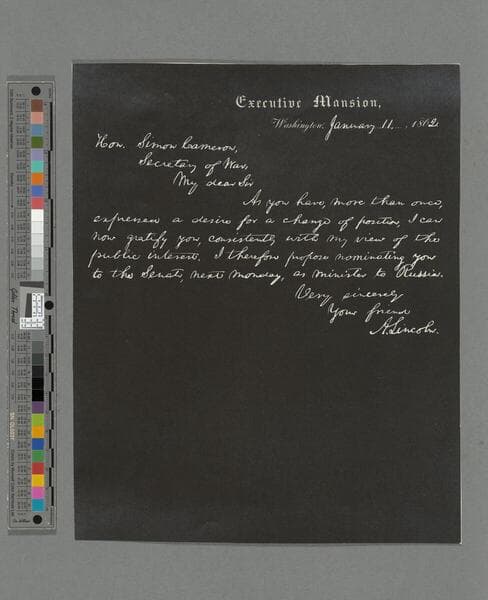 Executive Mansion,
Washington, January 11, 1862.
Hon. Simon Cameron,
Secretary of War,
My dear Sir
As you have, more than once,
expressed a desire for a change of position, I can
now gratify you, consistently with my view of the
public interest. I therefore propose nominating you
to the Senate, next Monday, as minister to Russia.
Very sincerely
Your friend
A. Lincoln.